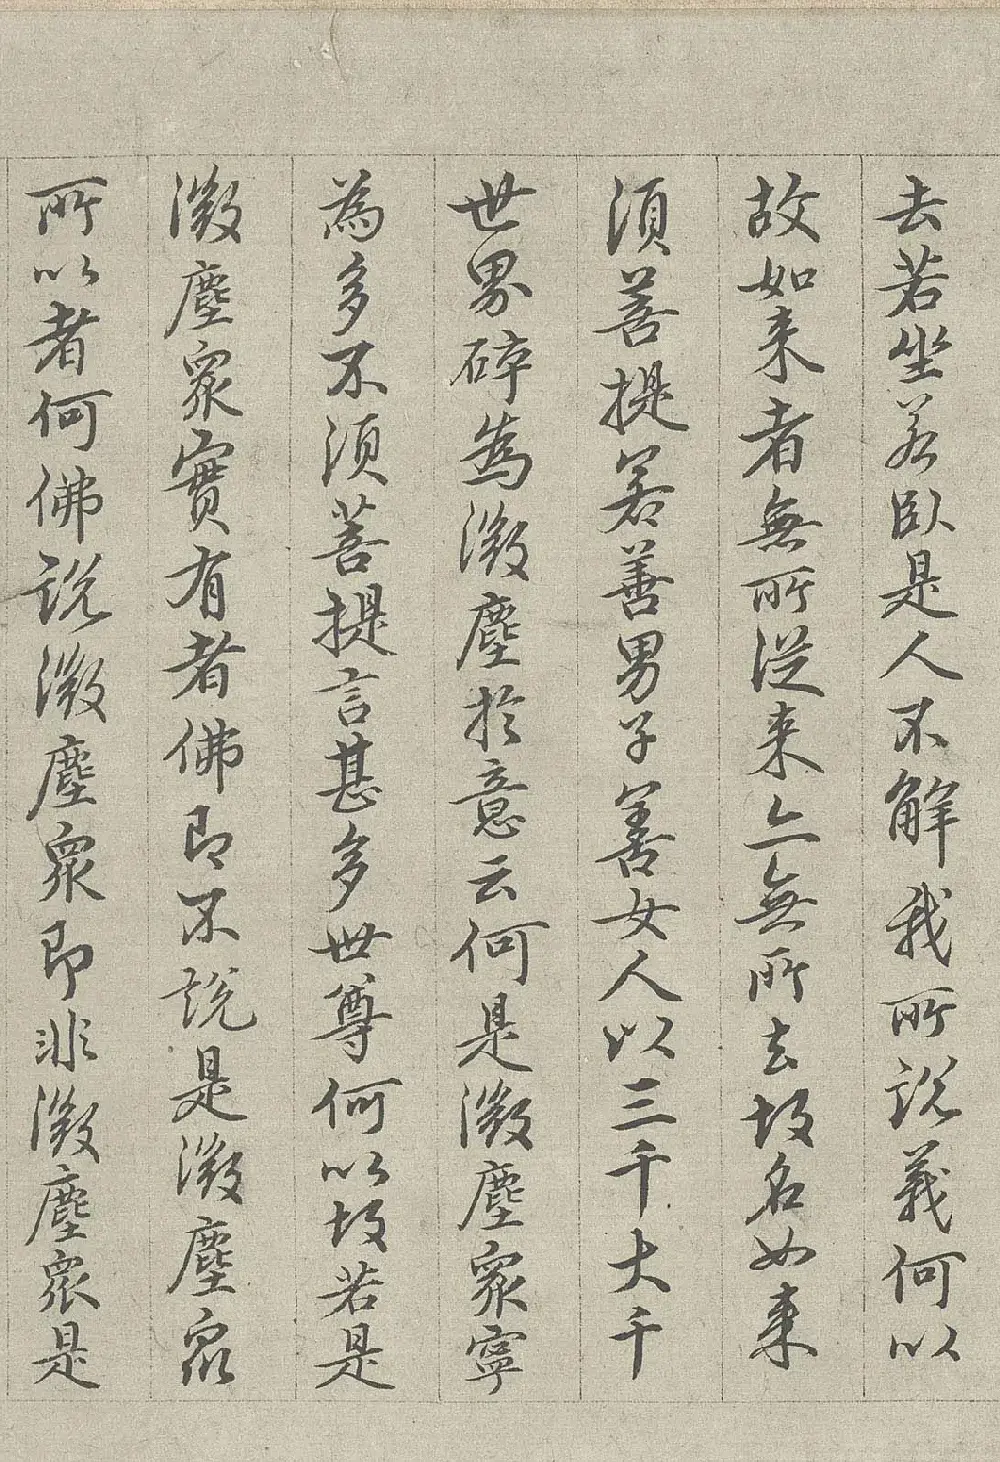 去若坐若臥是人不解我所說義何以
故如来者無所從来亦無所去故名如来
須菩提若善男子善女人以三千大千
世界碎為微塵於意云何是微塵衆寧
為多不須菩提言甚多世尊何以故若是
微塵衆實有者佛即不說是微塵衆
所以者何佛說微塵衆即非微塵衆是